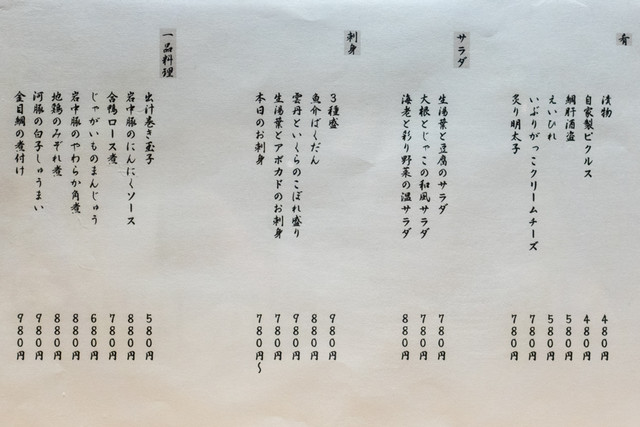 肴
漬物 480円
自家製ピクルス 480円
鯛肝酒盗 580円
えいひれ 580円
いぶりがっこクリームチーズ 780円
炙り明太子 780円
サラダ
生湯葉と豆腐のサラダ 780円
大根とじゃこの和風サラダ 780円
海老と彩り野菜の温サラダ 880円
刺身
3種盛 980円
魚介ばくだん 880円
雲丹といくらのこぼれ盛り 980円
生湯葉とアボカドのお刺身 780円
本日のお刺身 780円〜
一品料理
出汁巻き玉子 580円
岩中豚のにんにくソース 880円
合鴨ロース煮 780円
じゃがいものまんじゅう 680円
岩中豚のやわらか角煮 880円
地鶏のみぞれ煮 880円
河豚の白子しゅうまい 980円
金目鯛の煮付け 980円